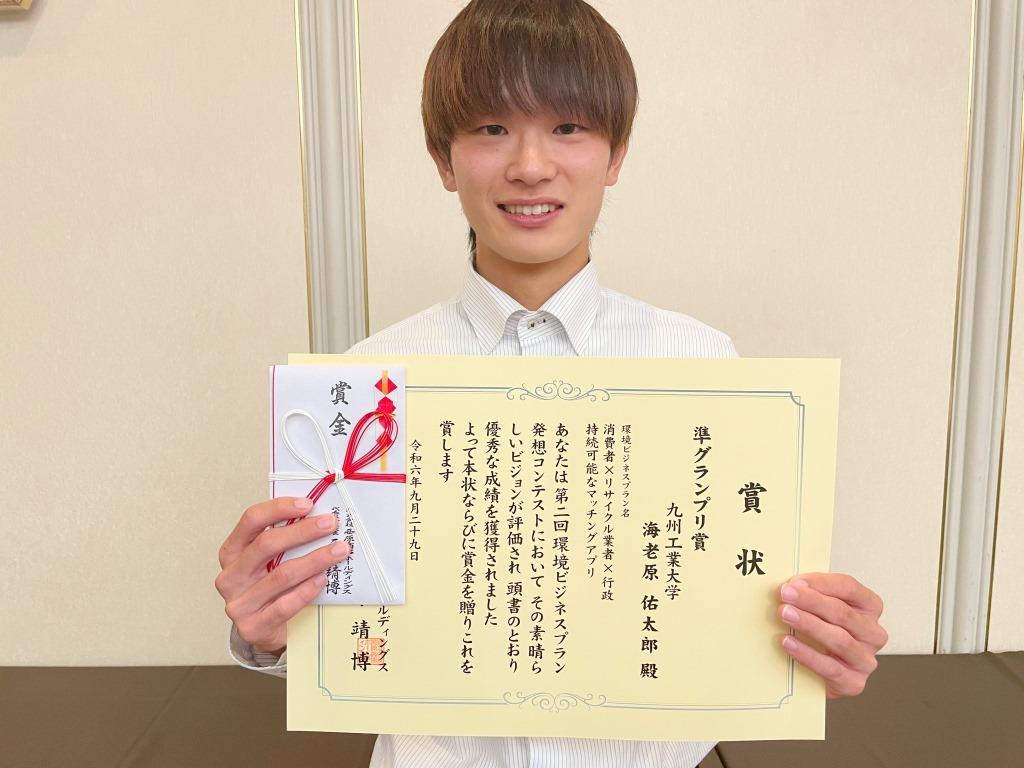 賞状
準グランプリ賞
九州工業大学
海老原 佑太郎 殿
環境ビジネスプラン名
消費者×リサイクル業者×行政
持続可能なマッチングアプリ
あなたは第二回環境ビジネスプラン
発想コンテストにおいて その素晴ら
しいビジョンが評価され 頭書のとおり
優秀な成績を獲得されました
よって本状ならびに賞金を贈りこれを
賞します
令和六年九月二十九日
ルディングス
靖博
賞金
ホールディングス
靖博